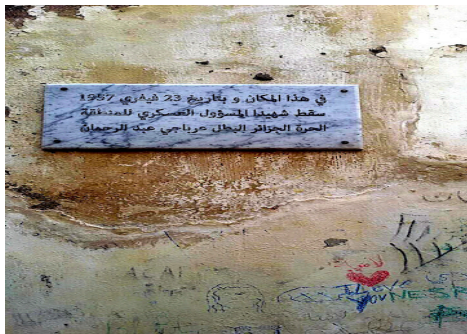 في هذا المكان و بتاريخ 23 فيفري 1957
سقط شهيدا المسؤول العسكري للمنطقة
الحرة الجزائر البطل عرباجي عبد الرحمان
ACAI
I LOVE
YOU